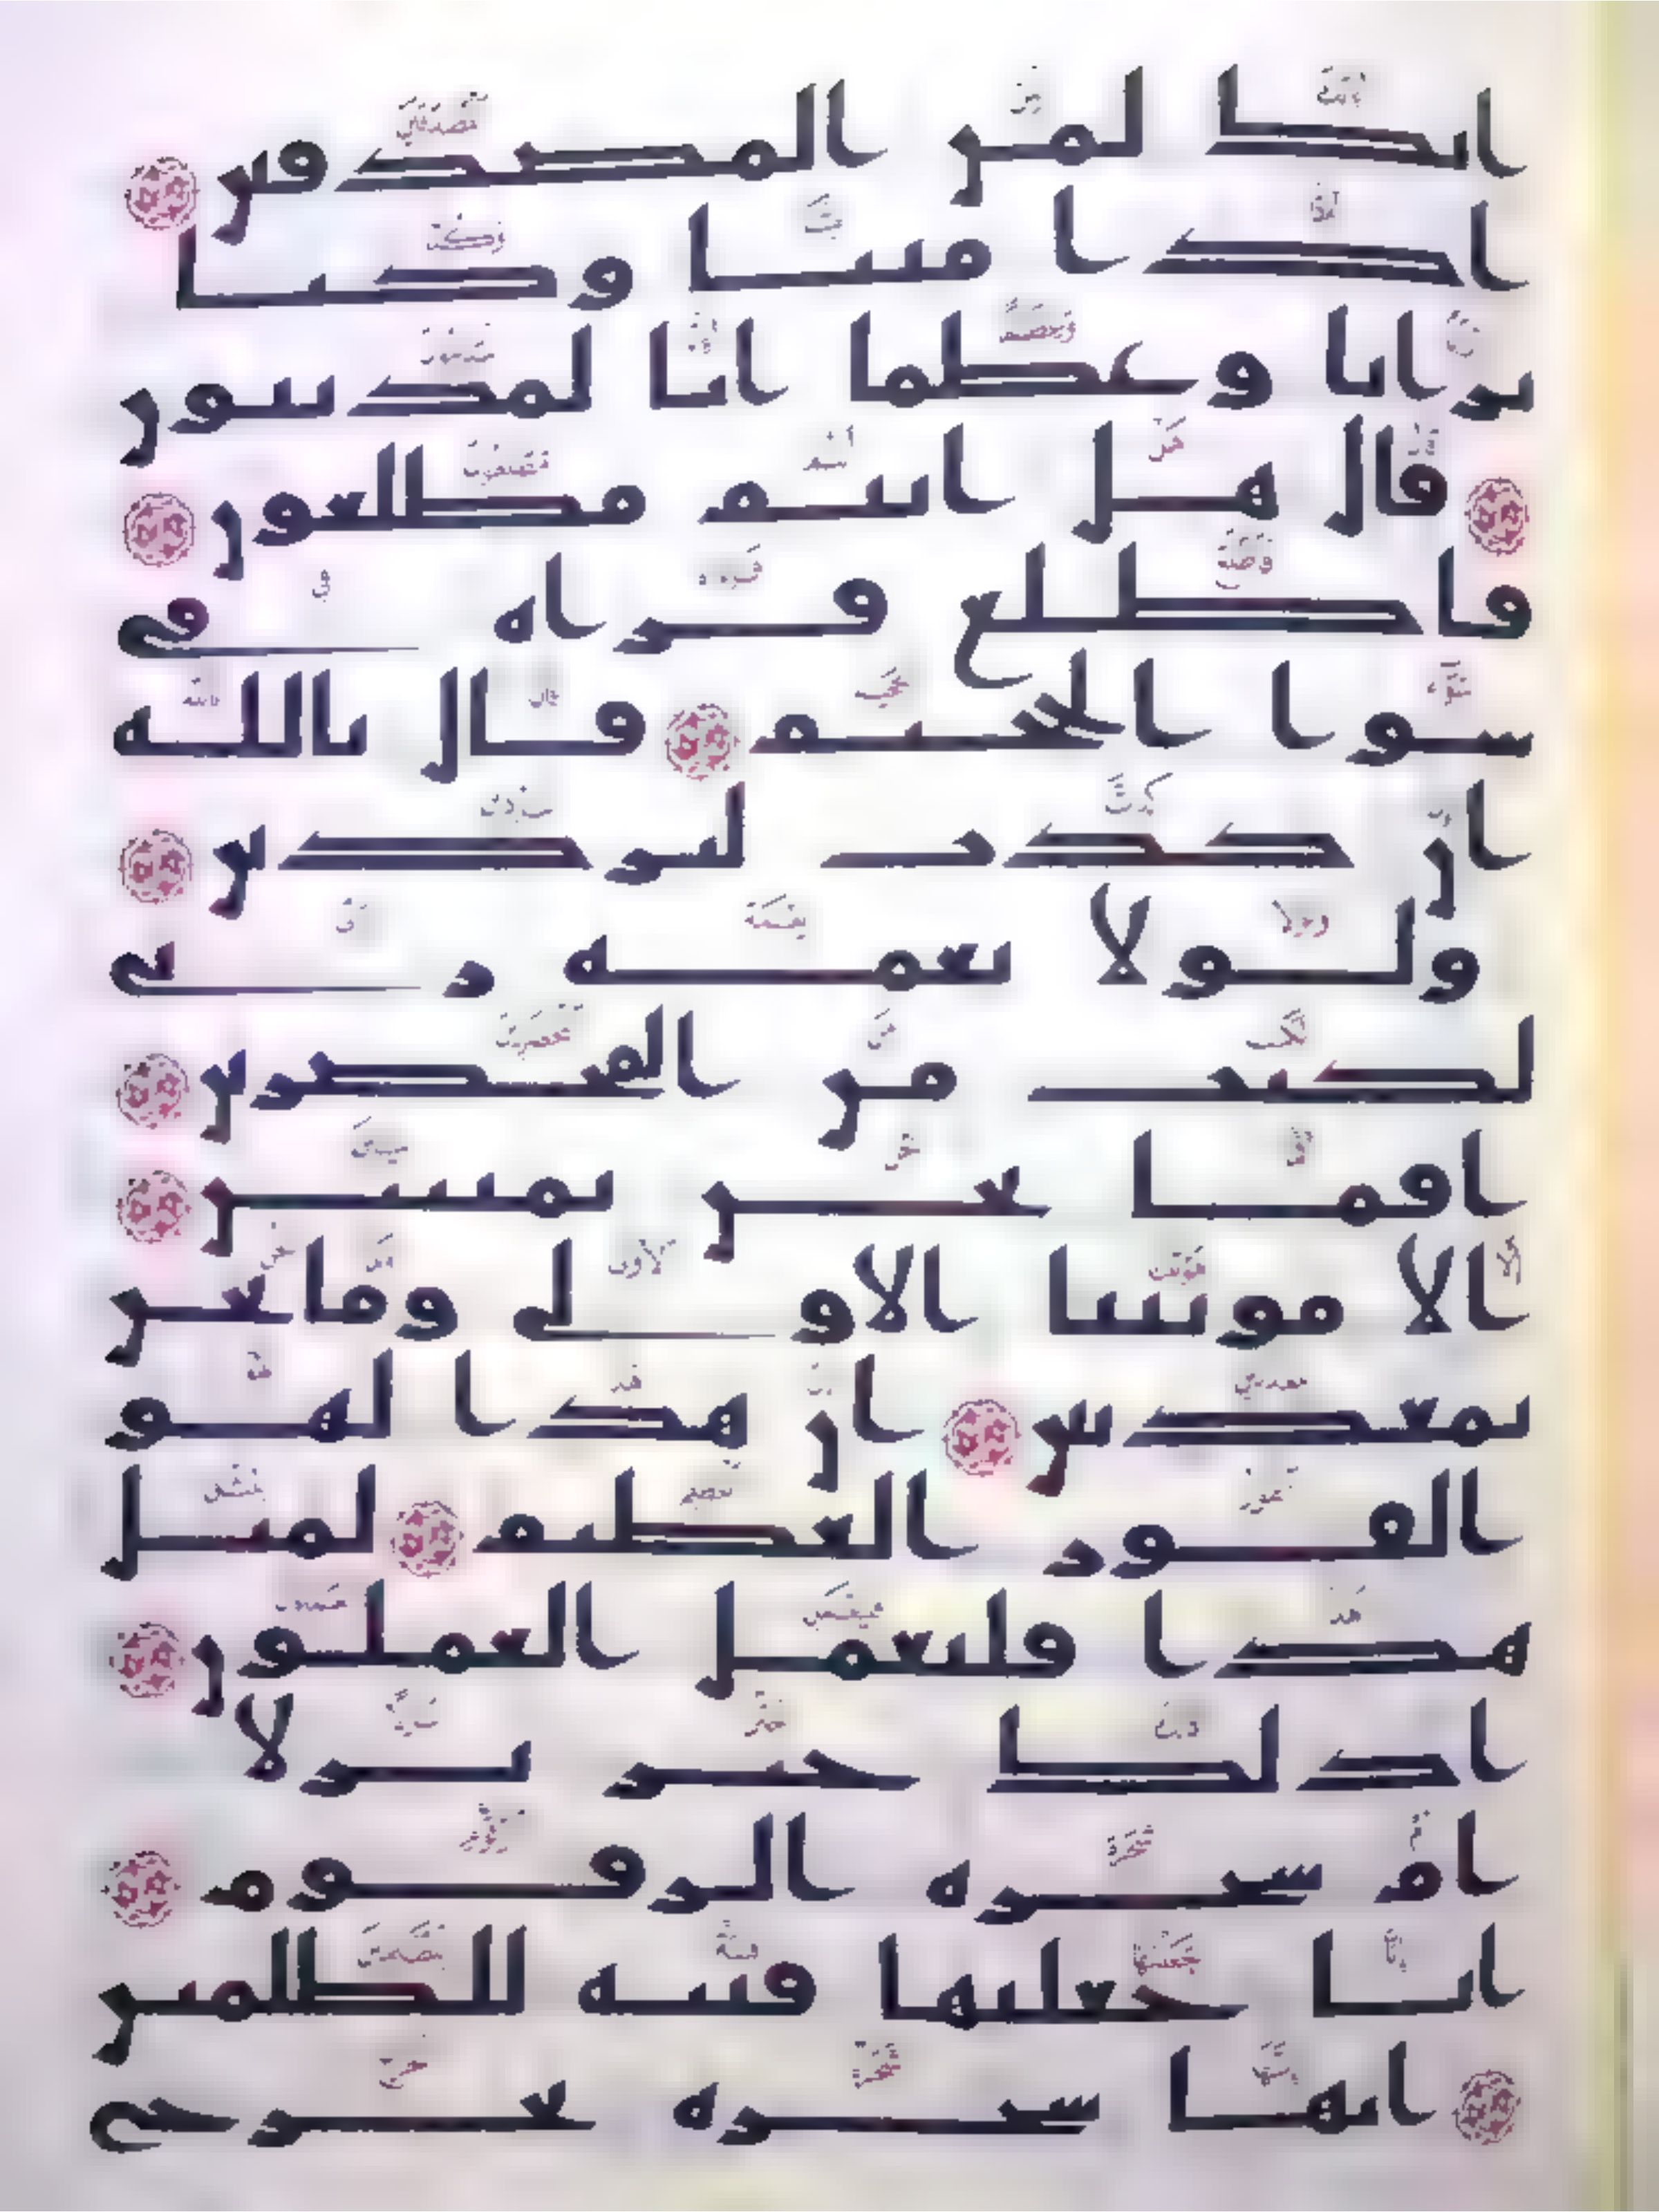 انك لمن المصدقين
اذا متنا وكنا
ترابا وعظما انا لمدينون
قال هل انتم مطلعون
فاطلع فراه في
سوا الجحيم قال تالله
ان كدت لتردين
ولولا نعمة ربي
لكنت من المحضرين
افما نحن بميتين
الا موتتنا الاولى وما نحن
بمعذبين ان هذا لهو
الفوز العظيم لمثل
هذا فليعمل العملون
اذلك خير نزلا
ام شجرة الزقوم
انا جعلنها فتنة للظلمين
انها شجرة تخرج